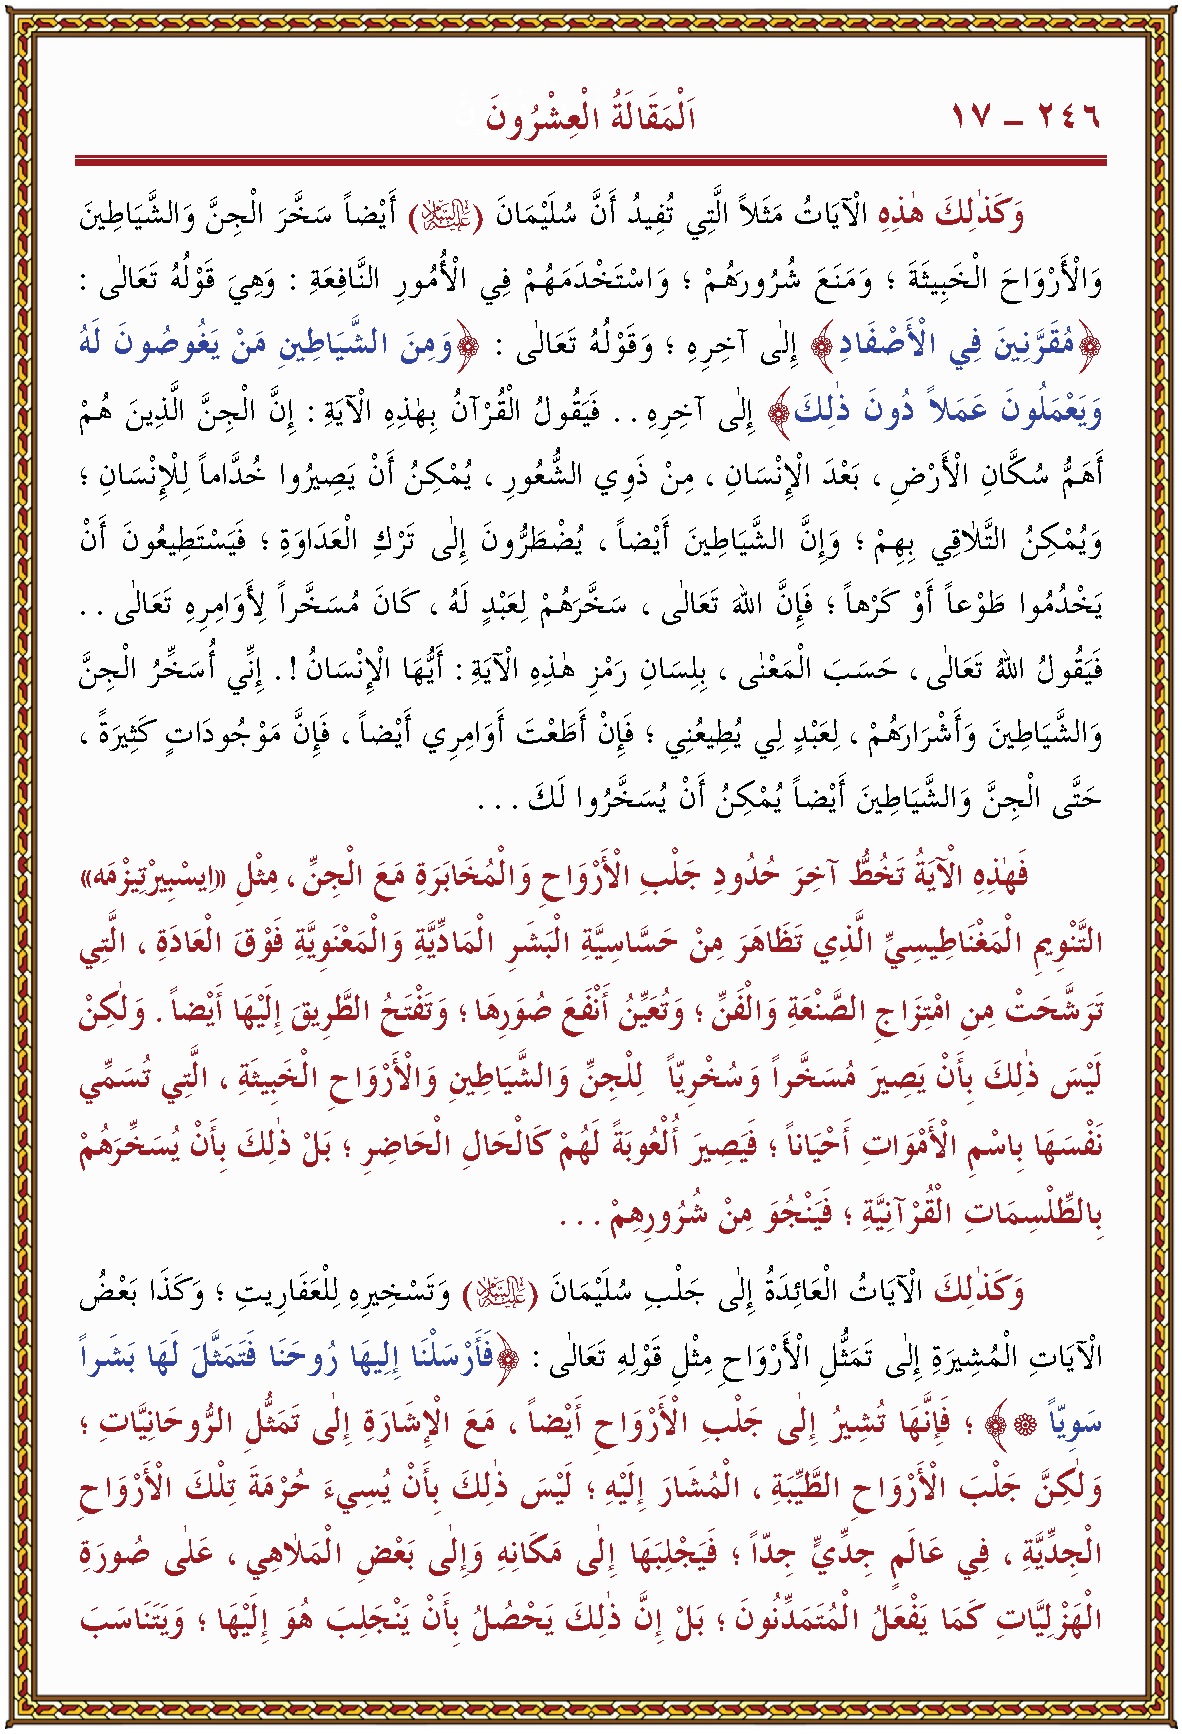 ٢٤٦ – ١٧ اَلْمَقَالَةُ الْعِشْرُونَ
وَكَذٰلِكَ هٰذِهِ الْآيَاتُ مَثَلاً الَّتِي تُفِيدُ أَنَّ سُلَيْمَانَ (ﷺ) أَيْضاً سَخَّرَ الْجِنَّ وَالشَّيَاطِينَ
وَالْأَرْوَاحَ الْخَبِيثَةَ ؛ وَمَنَعَ شُرُورَهُمْ ؛ وَاسْتَخْدَمَهُمْ فِي الْأُمُورِ النَّافِعَةِ : وَهِيَ قَوْلُهُ تَعَالٰى :
﴿مُقَرَّنِينَ فِي الْأَصْفَادِ﴾ إِلٰى آخِرِهِ ؛ وَقَوْلُهُ تَعَالٰى : ﴿وَمِنَ الشَّيَاطِينِ مَنْ يَغُوصُونَ لَهُ
وَيَعْمَلُونَ عَمَلاً دُونَ ذٰلِكَ﴾ إِلٰى آخِرِهِ . . فَيَقُولُ الْقُرْآنُ بِهٰذِهِ الْآيَةِ : إِنَّ الْجِنَّ الَّذِينَ هُمْ
أَهَمُّ سُكَّانِ الْأَرْضِ ، بَعْدَ الْإِنْسَانِ ، مِنْ ذَوِي الشُّعُورِ ، يُمْكِنُ أَنْ يَصِيرُوا خُدَّاماً لِلْإِنْسَانِ ؛
وَيُمْكِنُ التَّلَاقِي بِهِمْ ؛ وَإِنَّ الشَّيَاطِينَ أَيْضاً ، يُضْطَرُّونَ إِلٰى تَرْكِ الْعَدَاوَةِ ؛ فَيَسْتَطِيعُونَ أَنْ
يَخْدُمُوا طَوْعاً أَوْ كَرْهاً ؛ فَإِنَّ اللهَ تَعَالٰى ، سَخَّرَهُمْ لِعَبْدٍ لَهُ ، كَانَ مُسَخَّراً لِأَوَامِرِهِ تَعَالٰى . .
فَيَقُولُ اللهُ تَعَالٰى ، حَسَبَ الْمَعْنٰى ، بِلِسَانِ رَمْزِ هٰذِهِ الْآيَةِ : أَيُّهَا الْإِنْسَانُ ! . إِنِّي أُسَخِّرُ الْجِنَّ
وَالشَّيَاطِينَ وَأَشْرَارَهُمْ ، لِعَبْدٍ لِي يُطِيعُنِي ؛ فَإِنْ أَطَعْتَ أَوَامِرِي أَيْضاً ، فَإِنَّ مَوْجُودَاتٍ كَثِيرَةً ،
حَتَّى الْجِنَّ وَالشَّيَاطِينَ أَيْضاً يُمْكِنُ أَنْ يُسَخَّرُوا لَكَ . . .
فَهٰذِهِ الْآيَةُ تَخُطُّ آخِرَ حُدُودِ جَلْبِ الْأَرْوَاحِ وَالْمُخَابَرَةِ مَعَ الْجِنِّ ، مِثْلِ «اِيسْبِيرْتِيزْمَه»
التَّنْوِيمِ الْمَغْنَطِيسِيِّ الَّذِي تَظَاهَرَ مِنْ حَسَّاسِيَّةِ الْبَشَرِ الْمَادِّيَّةِ وَالْمَعْنَوِيَّةِ فَوْقَ الْعَادَةِ ، الَّتِي
تَرَشَّحَتْ مِنِ امْتِزَاجِ الصَّنْعَةِ وَالْفَنِّ ؛ وَتُعَيِّنُ أَنْفَعَ صُوَرِهَا ؛ وَتَفْتَحُ الطَّرِيقَ إِلَيْهَا أَيْضاً . وَلٰكِنْ
لَيْسَ ذٰلِكَ بِأَنْ يَصِيرَ مُسَخَّراً وَسُخْرِيّاً لِلْجِنِّ وَالشَّيَاطِينِ وَالْأَرْوَاحِ الْخَبِيثَةِ ، الَّتِي تُسَمِّي
نَفْسَهَا بِاسْمِ الْأَمْوَاتِ أَحْيَاناً ؛ فَيَصِيرَ أُلْعُوبَةً لَهُمْ كَالْحَالِ الْحَاضِرِ ؛ بَلْ ذٰلِكَ بِأَنْ يُسَخِّرَهُمْ
بِالطِّلْسِمَاتِ الْقُرْآنِيَّةِ ؛ فَيَنْجُوَ مِنْ شُرُورِهِمْ . . .
وَكَذٰلِكَ الْآيَاتُ الْعَائِدَةُ إِلٰى جَلْبِ سُلَيْمَانَ (ﷺ) وَتَسْخِيرِهِ لِلْعَفَارِيتِ ؛ وَكَذَا بَعْضُ
الْآيَاتِ الْمُشِيرَةِ إِلٰى تَمَثُّلِ الْأَرْوَاحِ مِثْلِ قَوْلِهِ تَعَالٰى : ﴿فَأَرْسَلْنَا إِلَيْهَا رُوحَنَا فَتَمَثَّلَ لَهَا بَشَراً
سَوِيّاً ۞﴾ ؛ فَإِنَّهَا تُشِيرُ إِلٰى جَلْبِ الْأَرْوَاحِ أَيْضاً ، مَعَ الْإِشَارَةِ إِلٰى تَمَثُّلِ الرُّوحَانِيَّاتِ ؛
وَلٰكِنَّ جَلْبَ الْأَرْوَاحِ الطَّيِّبَةِ ، الْمُشَارَ إِلَيْهِ ؛ لَيْسَ ذٰلِكَ بِأَنْ يُسِيءَ حُرْمَةَ تِلْكَ الْأَرْوَاحِ
الْجِدِّيَّةِ ، فِي عَالَمٍ جِدِّيٍّ جِدّاً ؛ فَيَجْلِبَهَا إِلٰى مَكَانِهِ وَإِلٰى بَعْضِ الْمَلَاهِي ، عَلٰى صُورَةِ
الْهَزْلِيَّاتِ كَمَا يَفْعَلُ الْمُتَمَدِّنُونَ ؛ بَلْ إِنَّ ذٰلِكَ يَحْصُلُ بِأَنْ يَنْجَلِبَ هُوَ إِلَيْهَا ؛ وَيَتَنَاسَبَ